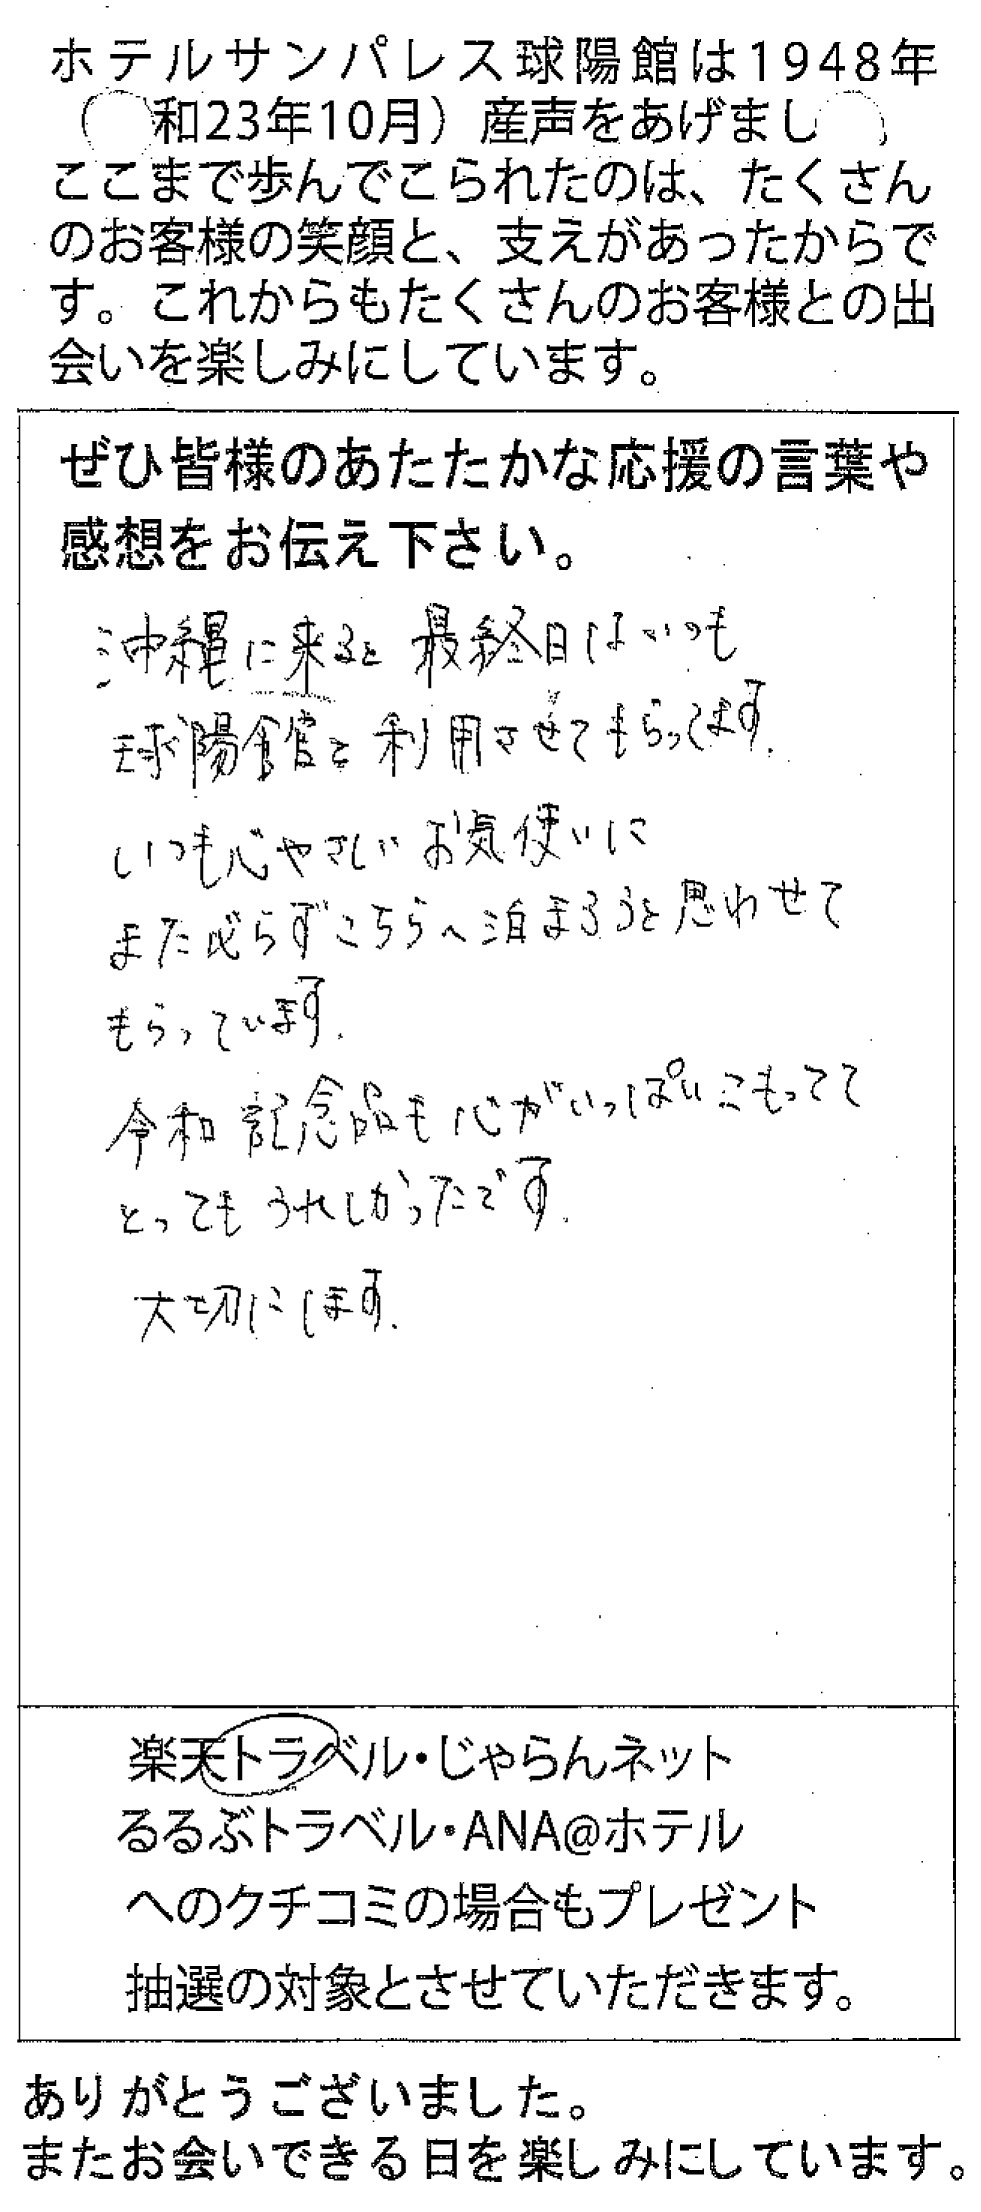 ホテルサンパレス球陽館は1948年
和23年10月）産声をあげまし
ここまで歩んでこられたのは、たくさん
のお客様の笑顔と、支えがあったからで
す。これからもたくさんのお客様との出
会いを楽しみにしています。
ぜひ皆様のあたたかな応援の言葉や
感想をお伝え下さい。
沖縄に来ると最終日はいつも
球陽館を利用させてもらってます.
いつも心やさしいお気使いに
また必らずこちらへ泊まろうと思わせて
もらっています.
令和記念品も心がいっぱいこもってて
とってもうれしかったです.
大切にします.
楽天トラベル・じゃらんネット
るるぶトラベル・ANA@ホテル
へのクチコミの場合もプレゼント
抽選の対象とさせていただきます。
ありがとうございました。
またお会いできる日を楽しみにしています。